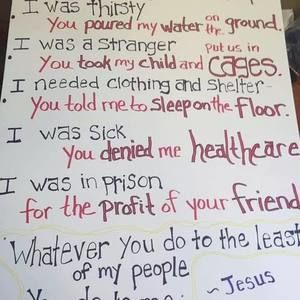 I was thirsty
You poured my water on the ground.
I was a stranger
You took my child and put us in cages.
I needed clothing and shelter-
You told me to sleep on the floor.
I was sick
You denied me healthcare
I was in prison
for the profit of your friend
Whatever you do to the least
of my people
~ Jesus
You do to me